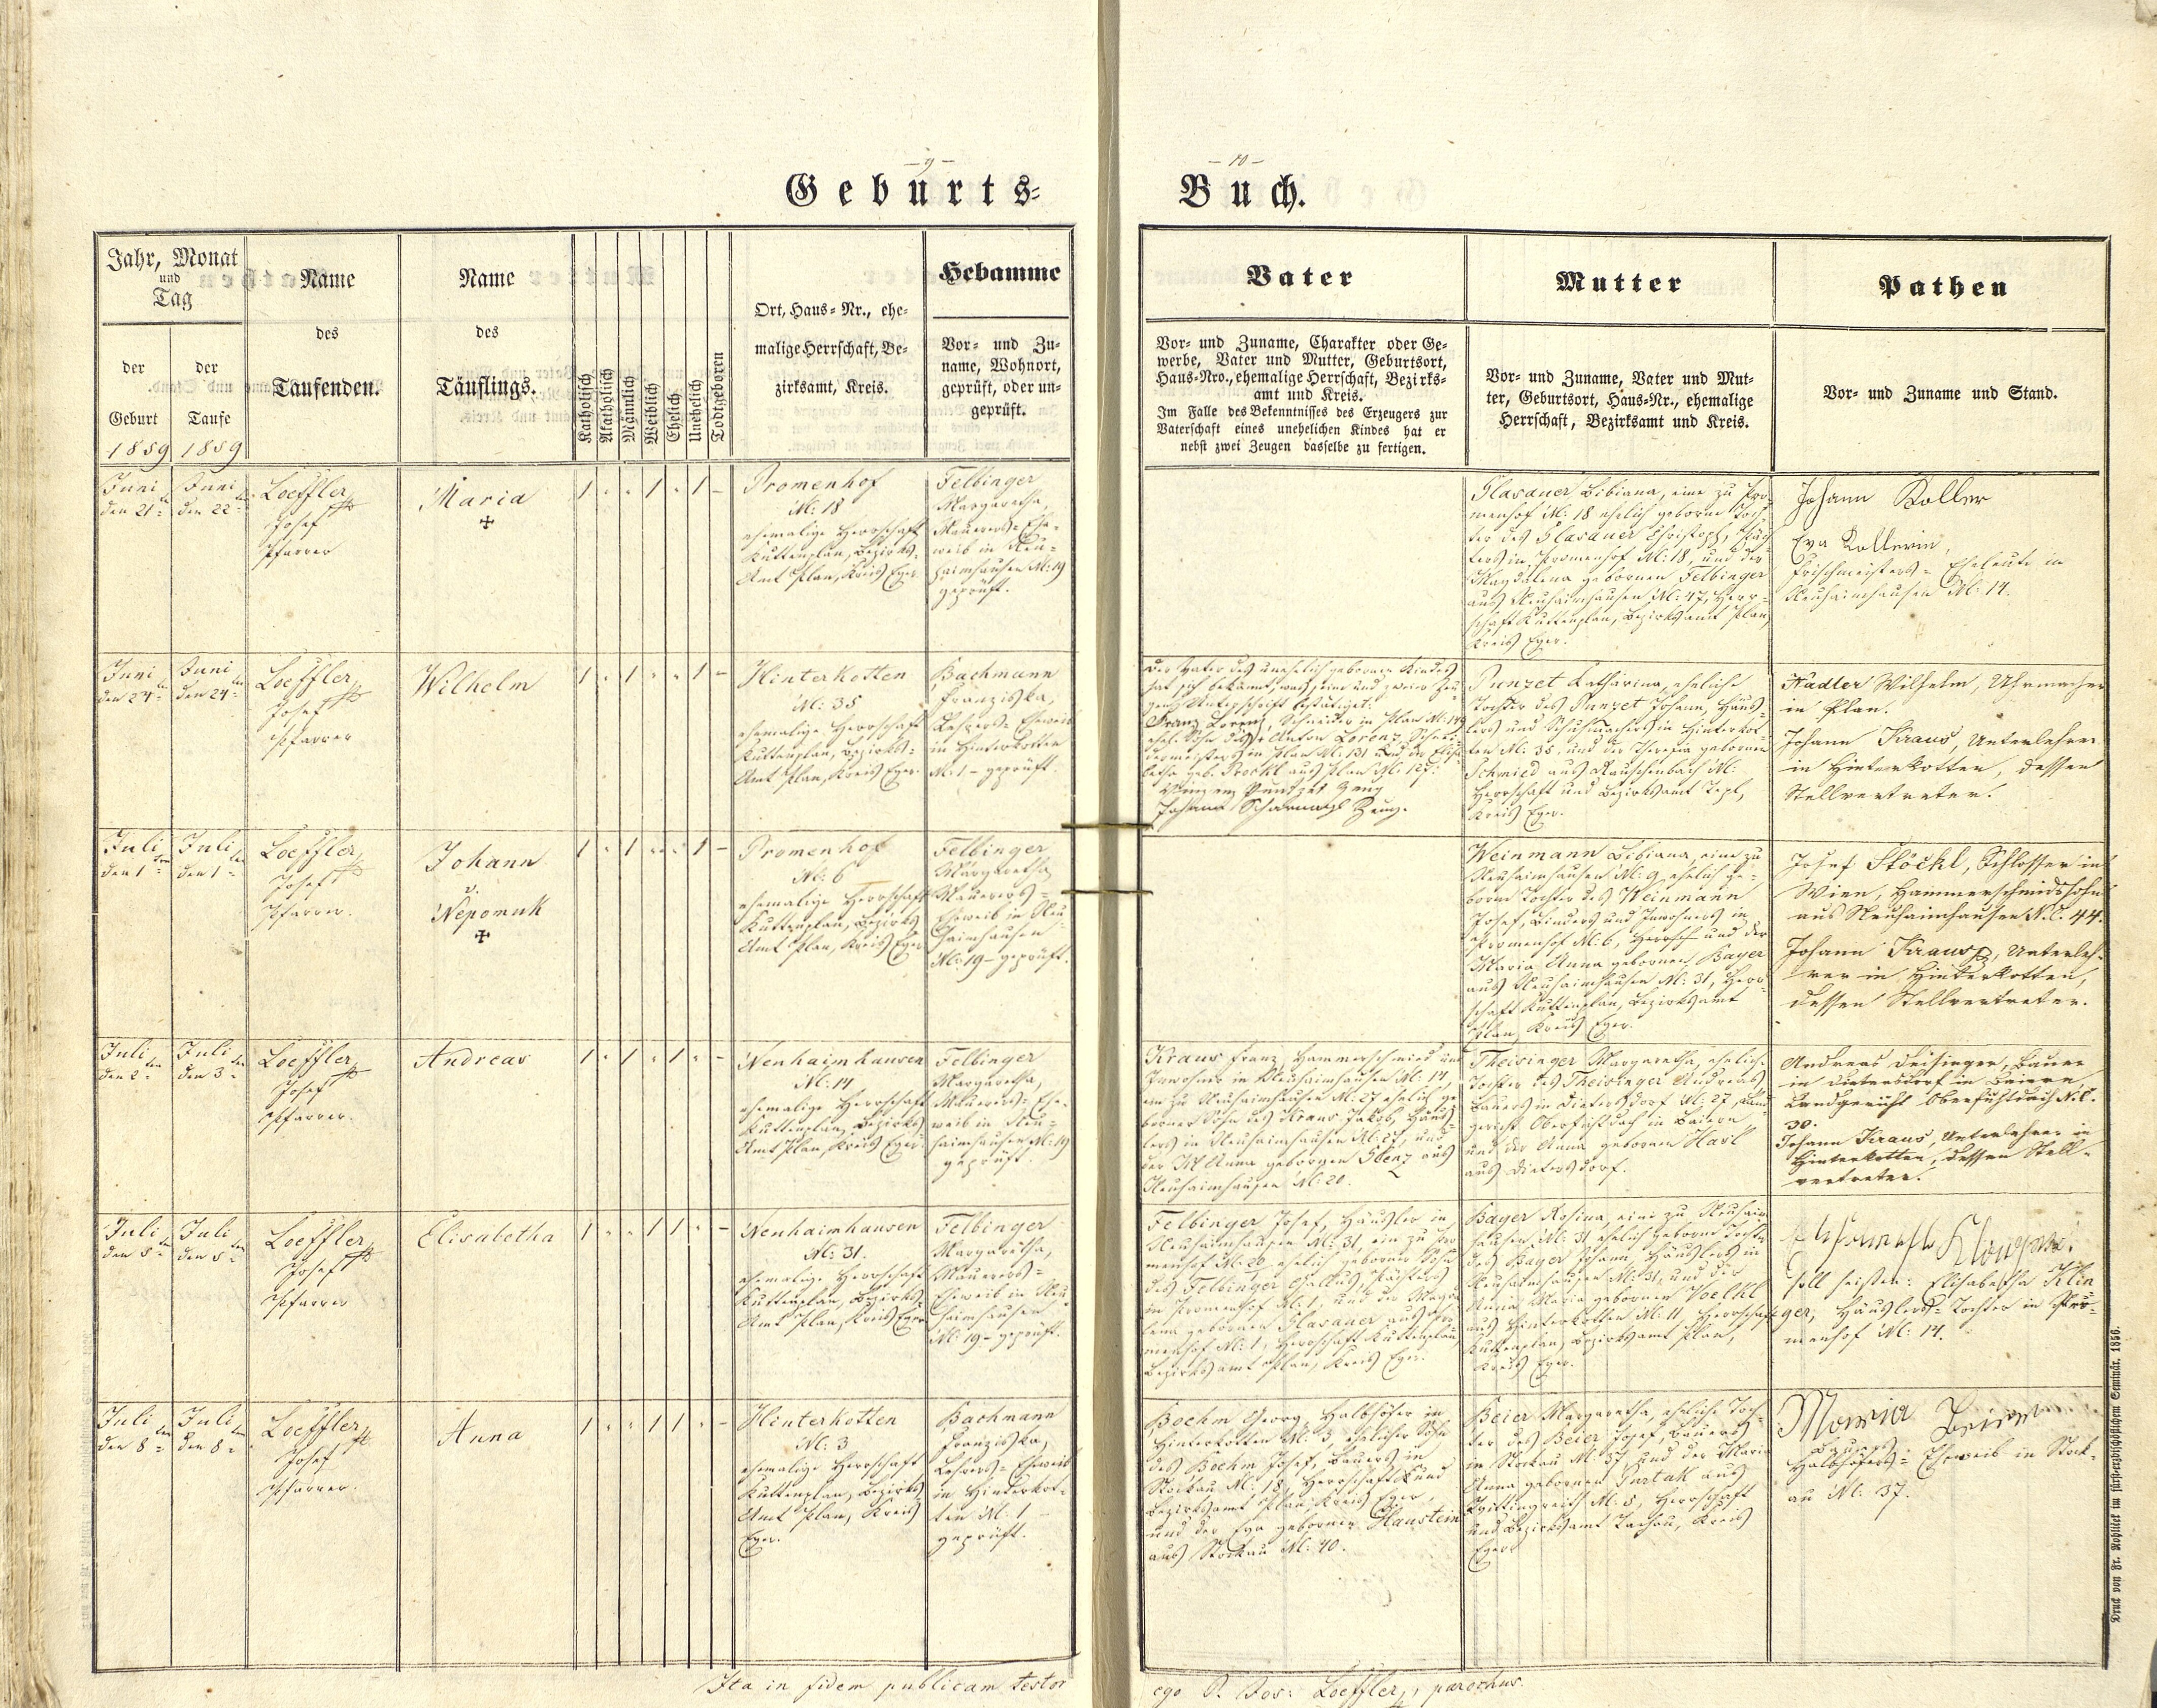 — 9 —
Geburts=
Jahr, Monat
und
Tag
der
Geburt
1859
der
Taufe
1859
Name
des
Taufenden.
Name
des
Täuflings.
Katholisch
Akatholisch
Männlich
Weiblich
Ehelich
Unehelich
Todtgeboren
Ort, Haus-Nr., ehe-
malige Herrschaft, Be-
zirksamt, Kreis.
Hebamme
Vor- und Zu-
name, Wohnort,
geprüft, oder un-
geprüft.
Juni
den 21
Juni
den 22
Loeffler
Josef
Pfarrer
Maria
Promenhof
N: 18
ehemalige Herrschaft
Kuttenplan, Bezirks-
Amt Plan, Kreis Eger.
Felbinger
Margaretha,
Maurers- Ehe-
weib in Neu-
haimhausen N: 19
geprüft.
Juni
den 24
Juni
den 24
Loeffler
Josef
Pfarrer
Wilhelm
Hinterkotten
N: 35
ehemalige Herrschaft
Kuttenplan, Bezirks-
Amt Plan, Kreis Eger.
Bachmann
Franziska,
Lehrers- Eheweib
in Hinterkotten
N: 1 - geprüft.
Juli
den 1
Juli
den 1
Loeffler
Josef
Pfarrer.
Johann
v.
Nepomuk
Promenhof
N: 6
ehemalige Herrschaft
Kuttenplan, Bezirks
Amt Plan, Kreis Eger
Felbinger
Margaretha
Maurers-
Eheweib in Neu
haimhausen
N: 19 - geprüft.
Juli
den 2
Juli
den 3
Loeffler
Josef
Pfarrer.
Andreas
Neuhaimhausen
N: 14
ehemalige Herrschaft
Kuttenplan, Bezirks
Amt Plan, Kreis Eger.
Felbinger
Margaretha,
Maurers- Ehe-
weib in Neu-
haimhausen N: 19
geprüft.
Juli
den 5
Juli
den 5
Loeffler
Josef
Pfarrer
Elisabetha
Neuhaimhausen
N: 31.
ehemalige Herrschaft
Kuttenplan, Bezirks-
Amt Plan, Kreis Eger
Felbinger
Margaretha,
Maurers-
Eheweib in Neu
haimhausen
N: 19 - geprüft.
Juli
den 8
Juli
den 8
Loeffler
Josef
Pfarrer.
Anna
Hinterkotten
N: 3
ehemalige Herrschaft
Kuttenplan, Bezirks
Amt Plan, Kreis
Eger.
Bachmann
Franziska,
Lehrers- Eheweib
in Hinterkot-
ten N: 1
geprüft.
Ita in fidem publicam testor
— 10 —
Buch.
Vater
Vor- und Zuname, Charakter oder Ge-
werbe, Vater und Mutter, Geburtsort,
Haus-Nro., ehemalige Herrschaft, Bezirks-
amt und Kreis.
Im Falle des Bekenntnisses des Erzeugers zur
Vaterschaft eines unehelichen Kindes hat er
nebst zwei Zeugen dasselbe zu fertigen.
Mutter
Vor- und Zuname, Vater und Mut-
ter, Geburtsort, Haus-Nr., ehemalige
Herrschaft, Bezirksamt und Kreis.
Pathen
Vor- und Zuname und Stand.
Glasauer Bibiana, eine zu Pro-
menhof N: 18 ehelich geborne Toch-
ter des Glasauer Christoph, Päch-
ters in Promenhof N: 18, und der
Magdalena gebornen Felbinger
aus Neuhaimhausen N: 47, Herr-
schaft Kuttenplan, Bezirksamt Plan,
Kreis Eger.
Johann Koller
Eva Kollerin,
Frischmeisters- Eheleute in
Neuhaimhausen N: 14.
Der Vater des unehelich gebornen Kindes
hat sich bekannt, was seine und zweier Zeu-
gen Unterschrift bestätiget:
Franz Lorenz, Schneider in Plan N:
ehel. Sohn des Anton Lorenz, Schnei-
dermeisters in Plan N: 131 und der Elisa-
betha geb. Prockl aus Plan N: 127:
Zeug
Johann Scharnagl Zeug.
Punzet Katharina, eheliche
Tochter des Punzet Johann, Häus-
lers und Schuhmachers in Hinterkot-
ten N: 35, und der Theresia gebornen
Schmied aus Rauschenbach N:
Herrschaft und Bezirksamt Tepl,
Kreis Eger.
Nadler Wilhelm, Uhrmacher
in Plan.
Johann Kraus, Unterlehrer
in Hinterkotten, dessen
Stellvertreter.
Weinmann Bibiana, eine zu
Neuhaimhausen N: 9 ehelich ge-
borne Tochter des Weinmann
Josef, Binders und Inwohners in
Promenhof N: 6, und der
Maria Anna gebornen Bayer
aus Neuhaimhausen N: 31, Herr-
schaft Kuttenplan, Bezirksamt
Plan, Kreis Eger.
Josef Stöckl, Schlosser in
Wien, Hammerschmidssohn
aus Neuhaimhausen N.C. 44.
Johann Kraus, Unterleh-
rer in Hinterkotten,
dessen Stellvertreter.
Kraus Franz, Hammerschmied und
Inwohner in Neuhaimhausen N: 14,
ein zu Neuhaimhausen N: 27 ehelich ge-
borner Sohn des Kraus Jakob, Häus-
lers in Neuhaimhausen N: 27, und
der M Anna gebornen aus
Neuhaimhausen N: 20.
Theisinger Margaretha, eheliche
Tochter des Theisinger Andreas,
Bauers in Dietersdorf N: 27, Land-
gericht Oberfichtach in Baiern,
und der Anna gebornen Harl
aus Dietersdorf.
Andreas Deisinger, Bauer
in Dietersdorf in Baiern,
Landgericht Oberfichtach N.C.
30.
Johann Kraus, Unterlehrer in
Hinterkotten, dessen Stell-
vertreter.
Felbinger Josef, Häusler in
Neuhaimhausen N: 31, ein zu Pro
menhof N: 20 ehelich geborner Sohn
des Felbinger Gallus, Pächters
in Promenhof N: 1, und der Magda
lena gebornen Glasauer aus Pro-
menhof N: 1, Herrschaft Kuttenplan,
Bezirksamt Plan, Kreis Eger.
Bayer Rosina, eine zu Neuhaim
hausen N: 31 ehelich geborne Tochter
des Bayer Johann, Häuslers in
Neuhaimhausen N: 31, und der
Anna Maria gebornen Joelkl
aus Hinterkotten N: 11 Herrschaft
Kuttenplan, Bezirksamt Plan,
Kreis Eger.
soll heißen: Elisabetha Klin
ger, Häuslers- Tochter in Pro-
menhof N: 14.
Boehm Georg, Halbhöfer in
Hinterkotten N: 3, ehelicher Sohn
des Boehm Josef, Bauers in
Stockau N: 18, Herrschaft und
Bezirksamt Plan, Kreis Eger,
und der Eva gebornen Haustein
aus Stockau N: 40.
Beier Margaretha, eheliche Toch-
ter des Beier Josef, Bauers
in Stockau N: 37, und der Maria
Anna gebornen Partak aus
N: 5, Herrschaft
und Bezirksamt Tachau, Kreis
Eger.
Maria Beier
Bauers
Halbhöfers- Eheweib in Stock-
au N: 37.
ego P. Jos: Loeffler, parochus.
Druck von Fr. Rohliček im fürsterzbischöflichem Seminär. 1856.